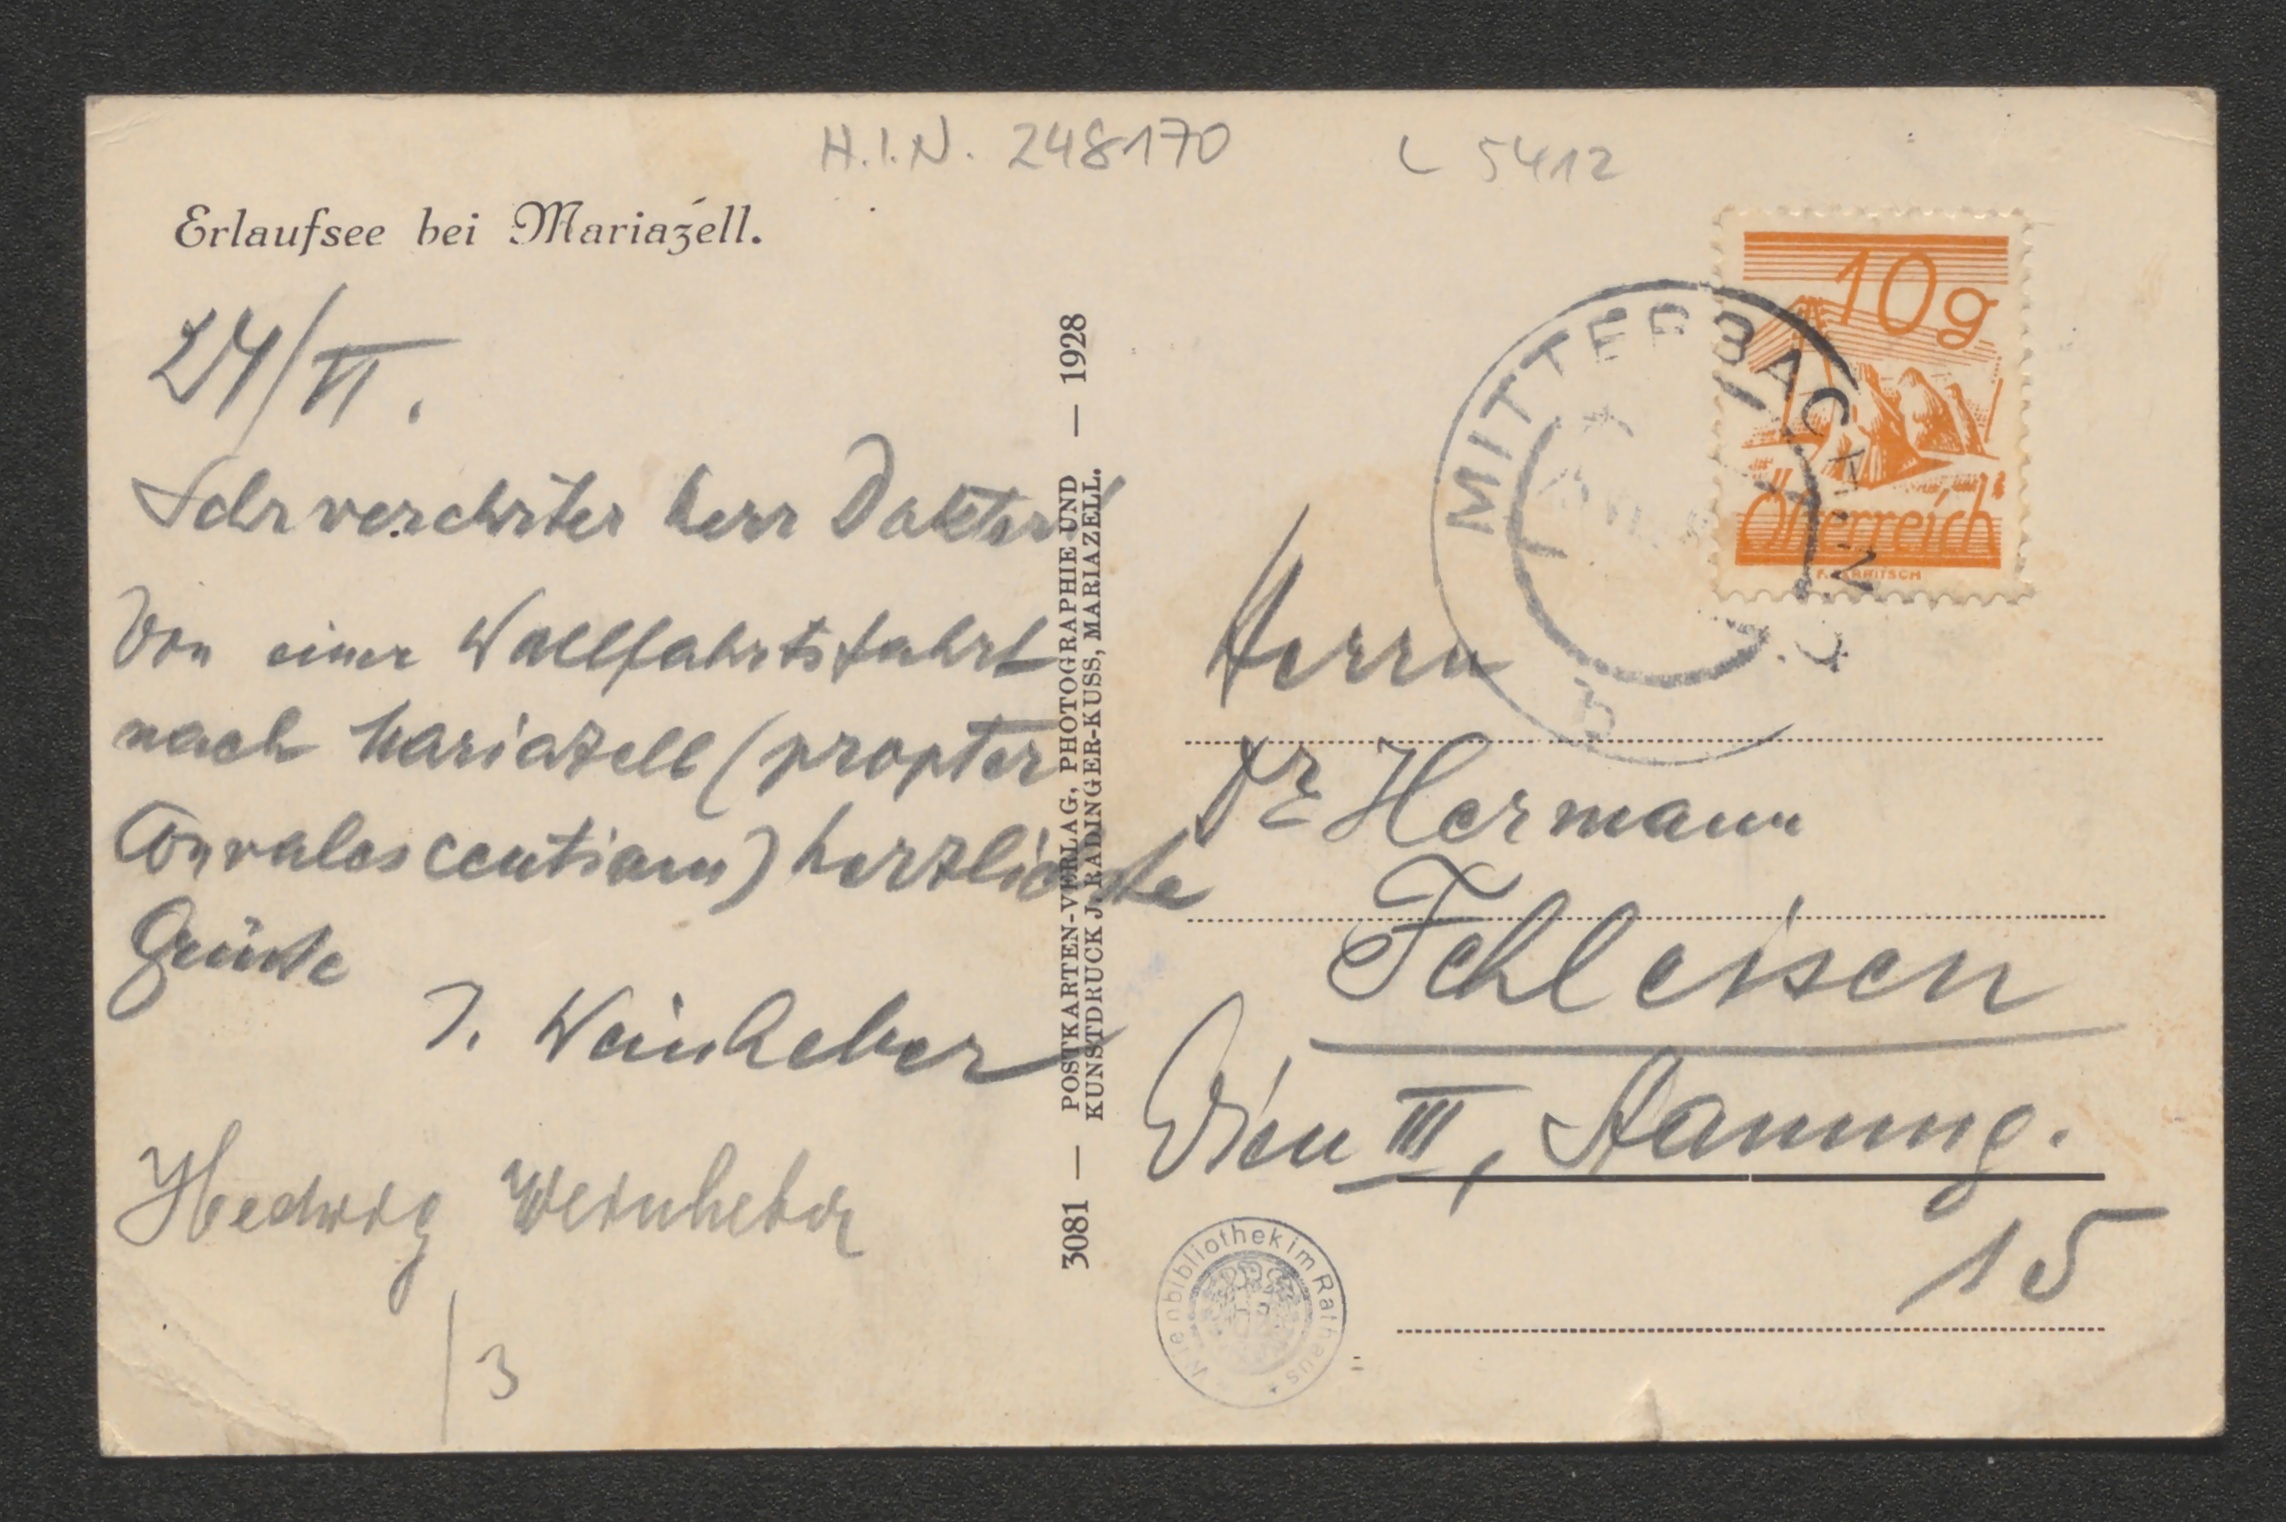 H.I.N. 248170
L 5412
Erlaufsee bei Mariazell.
24/VI.
Sehr verehrter Herr Doktor!
Von einer Wallfahrtsfahrt
nach Mariazell (propter
Convalescentiam) herzlichste
Grüsse
J. Weinheber
Hedwig Weinheber
3
3081 — POSTKARTEN-VERLAG, PHOTOGRAPHIE UND — 1928
KUNSTDRUCK J. RADINGER-KUSS, MARIAZELL.
10g
Österreich
MITTERBACH
Herrn
Dr Hermann
Fehleisen
Wien III, Stammg.
15
Wienbibliothek im Rathaus